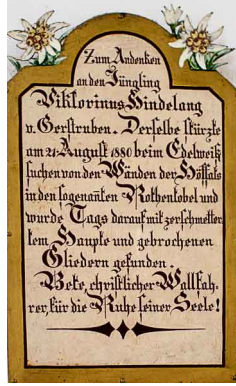 Zum Andenken
an den Jüngling
Viktorinus Hindelang
v. Gerstruben. Derselbe stürzte
am 21. August 1880 beim Edelweiß
suchen von den Wänden der Höffats
in den sogenanten Rothenlobel und
wurde Tags darauf mit zerschmetter
tem Haupte und gebrochenen
Gliedern gefunden
Bete, christlicher Wallfah-
rer, für die Ruhe seiner Seele!